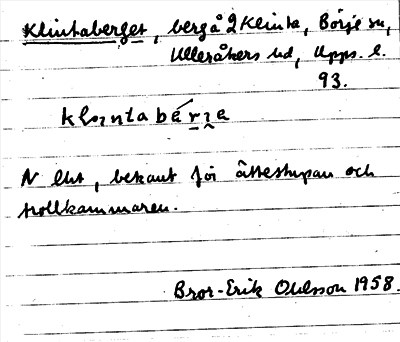 Klintaberget, berg å 2 Klinta, Börje sn,
Ulleråkers hd, Upps. l.
93.
N Åkt, bekant för ättestupan och
trollkammaren.
Bror-Erik Ohlsson 1958.